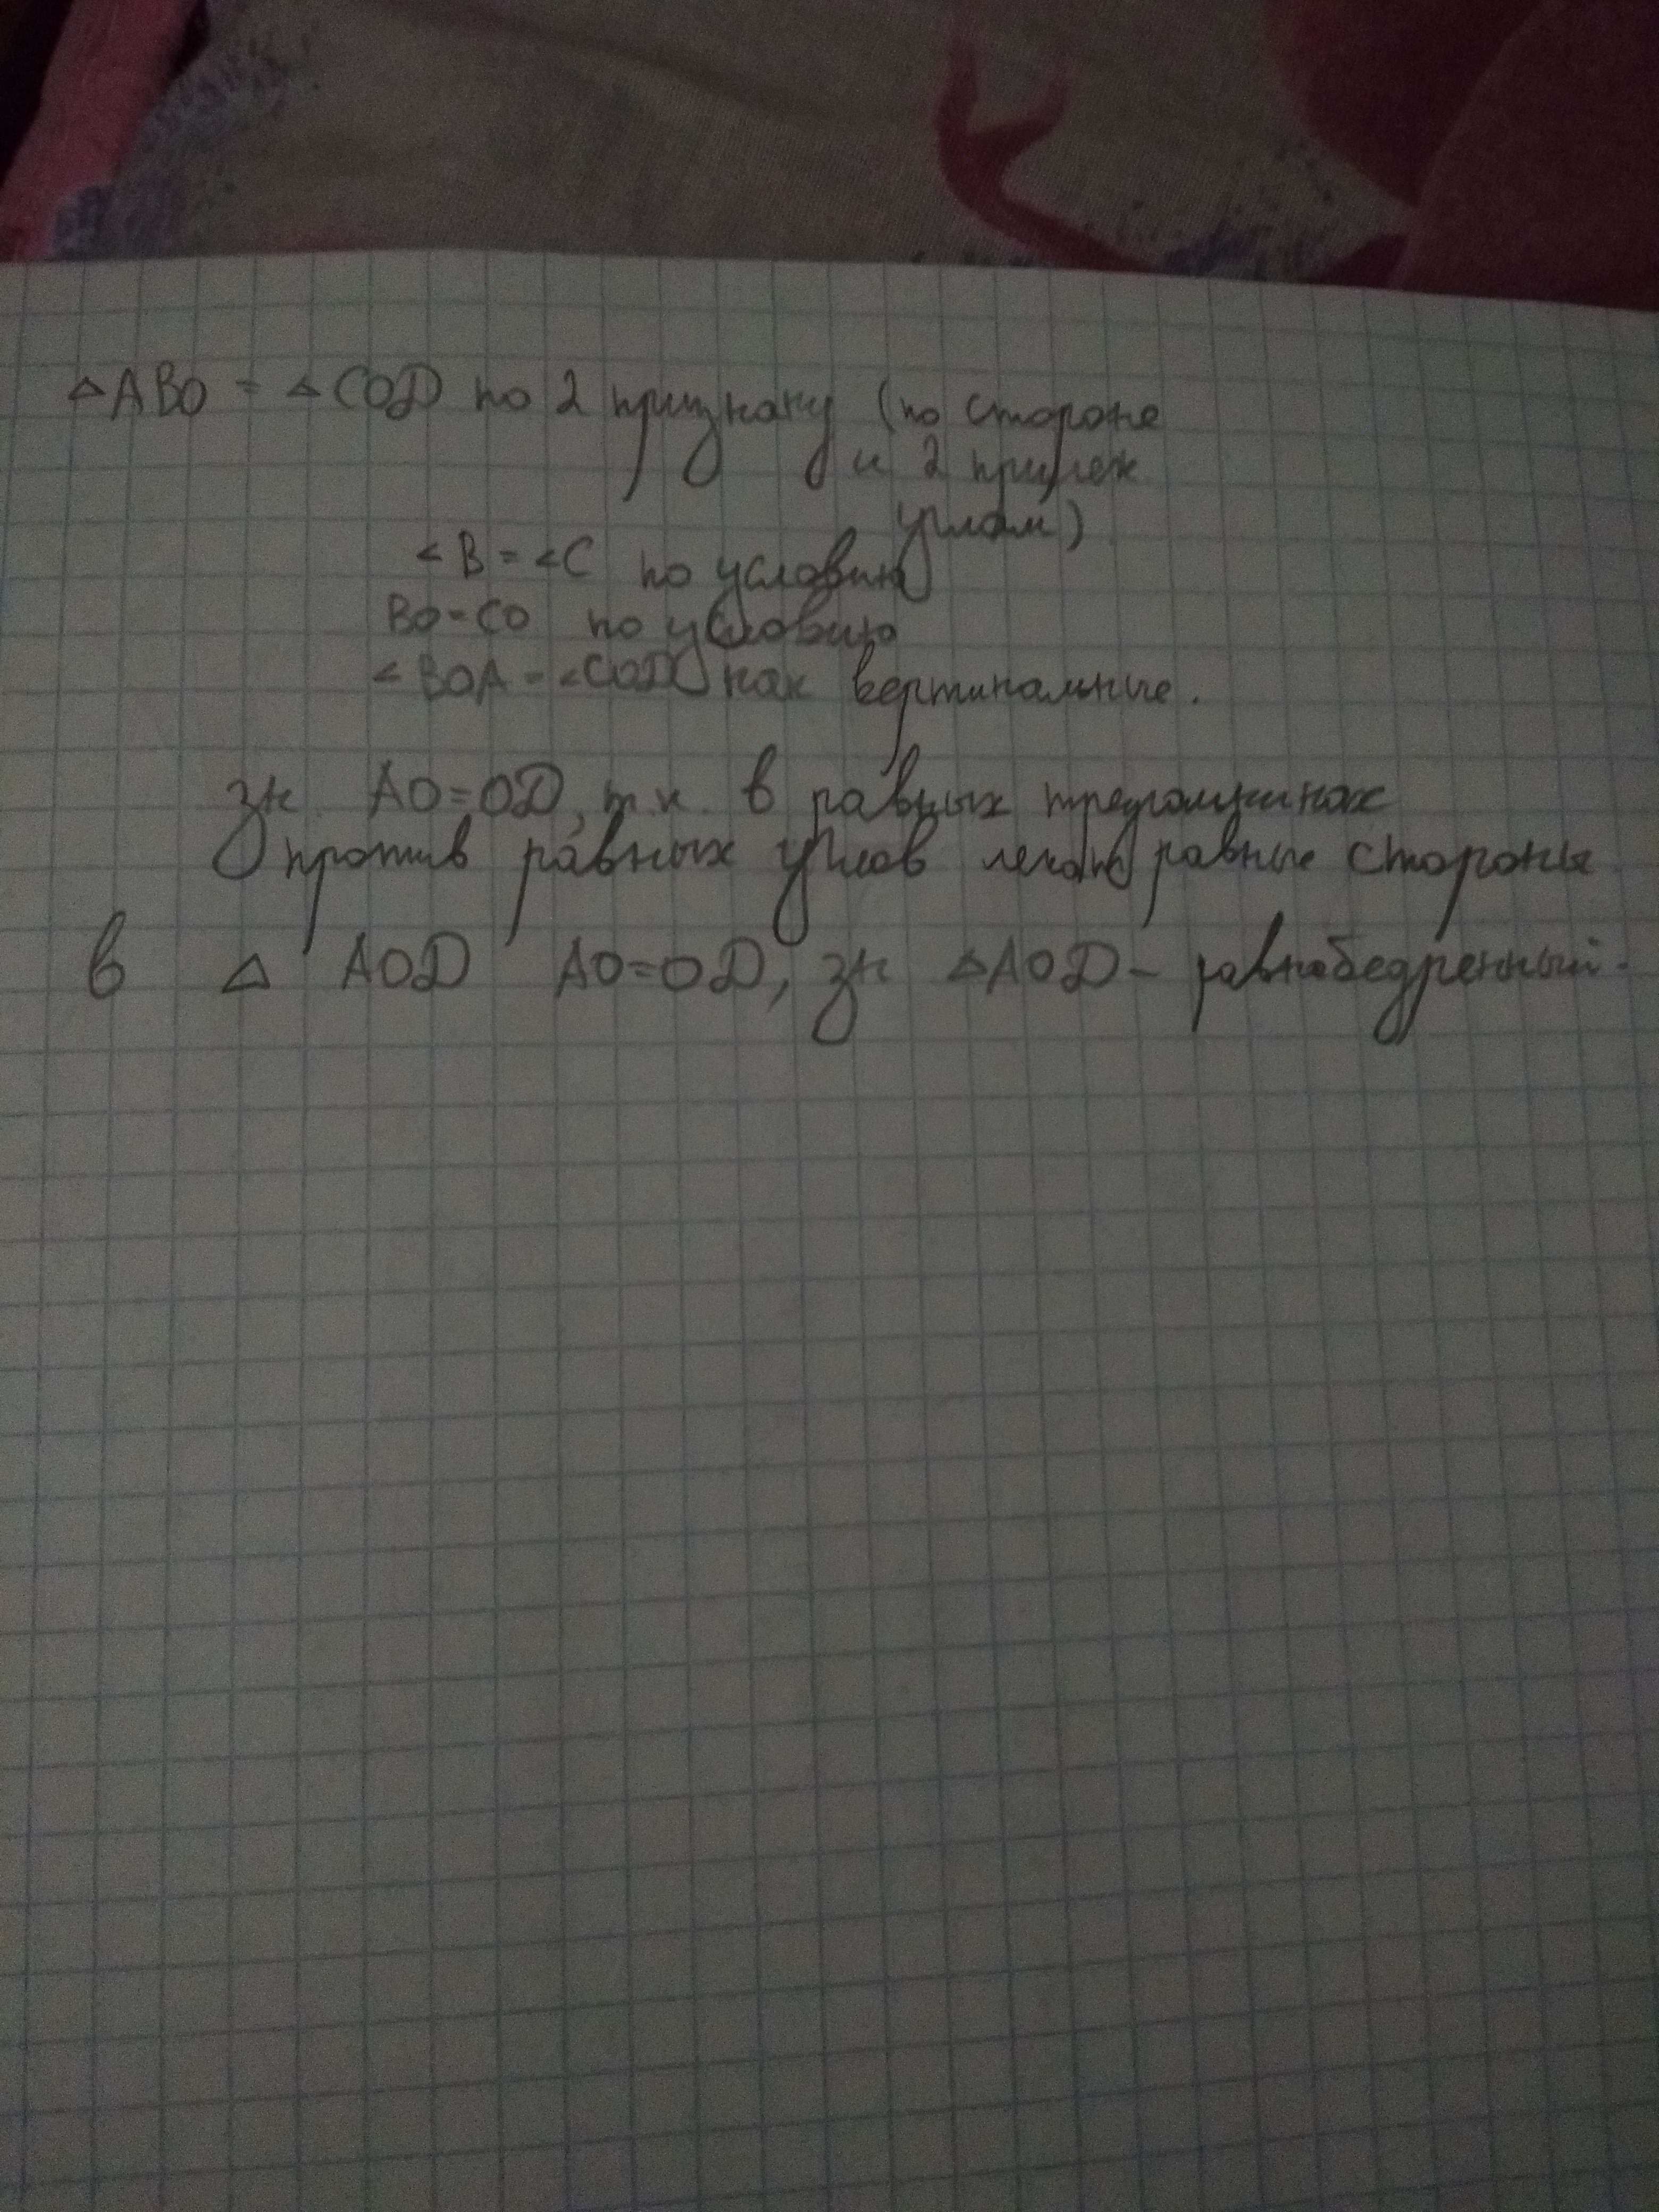 △ABO = △COD по 2 признаку (по стороне
и 2 прилеж
углам)
<B = <C по условию
BO=CO по условию
<BOA = <COD как вертикальные.
зн. AO=OD, т.к. в равных треугольниках
против равных углов лежат равные стороны
в △ AOD AO=OD, зн △AOD - равнобедренный.